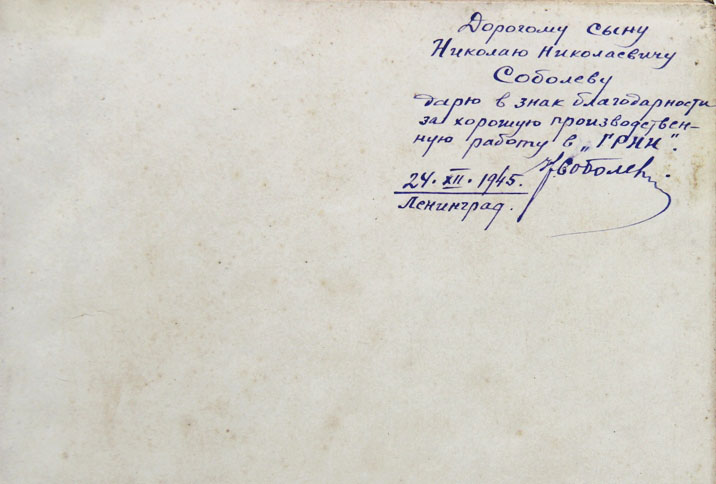 Дорогому сыну
Николаю Николаевичу
Соболеву
дарю в знак благодарности
за хорошую производствен-
ную работу в „ГРИИ".
Н. Соболев
24. XII. 1945.
Ленинград.